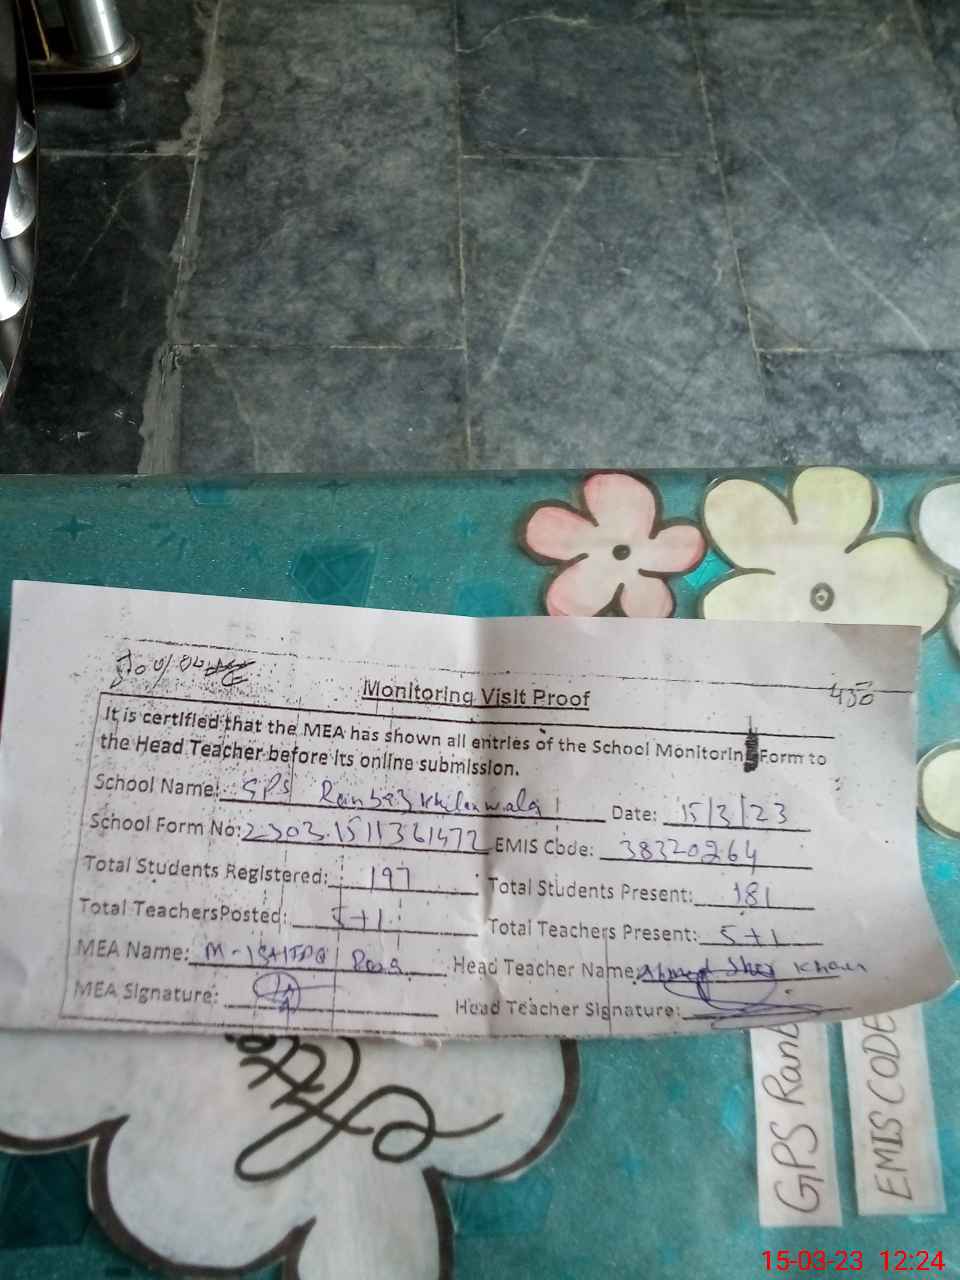 450
Monitoring Visit Proof
It is certified that the MEA has shown all entries of the School Monitoring Form to
the Head Teacher before its online submission.
School Name: GPS Ranbaz Khilanwala Date: 15/3/23
School Form No: 2303.1511361472 EMIS Code: 38320264
Total Students Registered: 197 Total Students Present: 181
Total TeachersPosted: 5+1 Total Teachers Present: 5+1
MEA Name: M-ISHTAQ Head Teacher Name: Ahmed Sher Khan
MEA Signature: Head Teacher Signature:
GPS Ranb
EMIS CODE
15-03-23 12:24